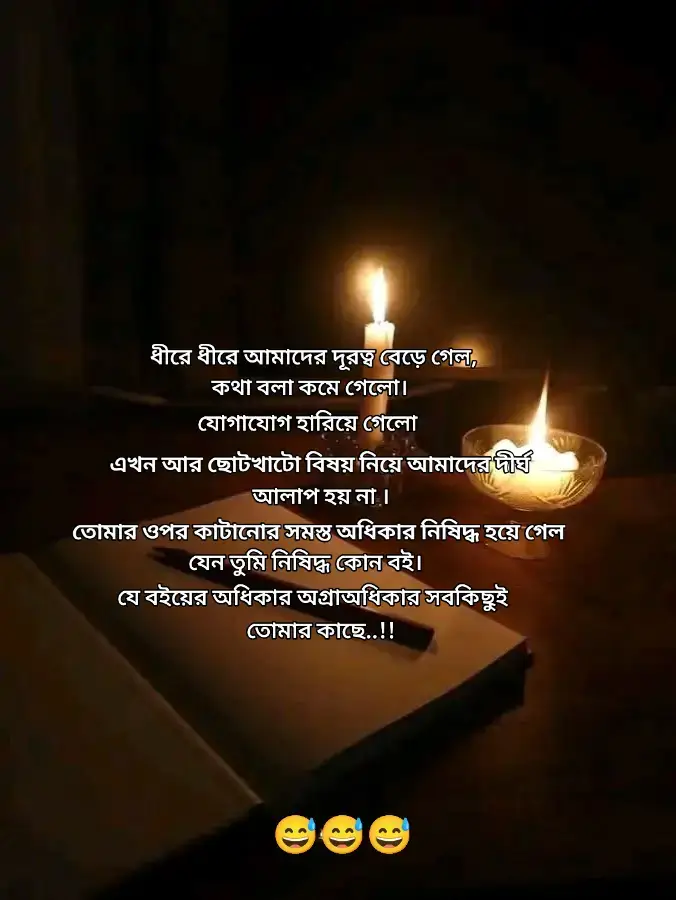 ধীরে ধীরে আমাদের দূরত্ব বেড়ে গেল,
কথা বলা কমে গেলো।
যোগাযোগ হারিয়ে গেলো
এখন আর ছোটখাটো বিষয় নিয়ে আমাদের দীর্ঘ
আলাপ হয় না ।
তোমার ওপর কাটানোর সমস্ত অধিকার নিষিদ্ধ হয়ে গেল
যেন তুমি নিষিদ্ধ কোন বই।
যে বইয়ের অধিকার অগ্রাঅধিকার সবকিছুই
তোমার কাছে..!!
😅😅😅